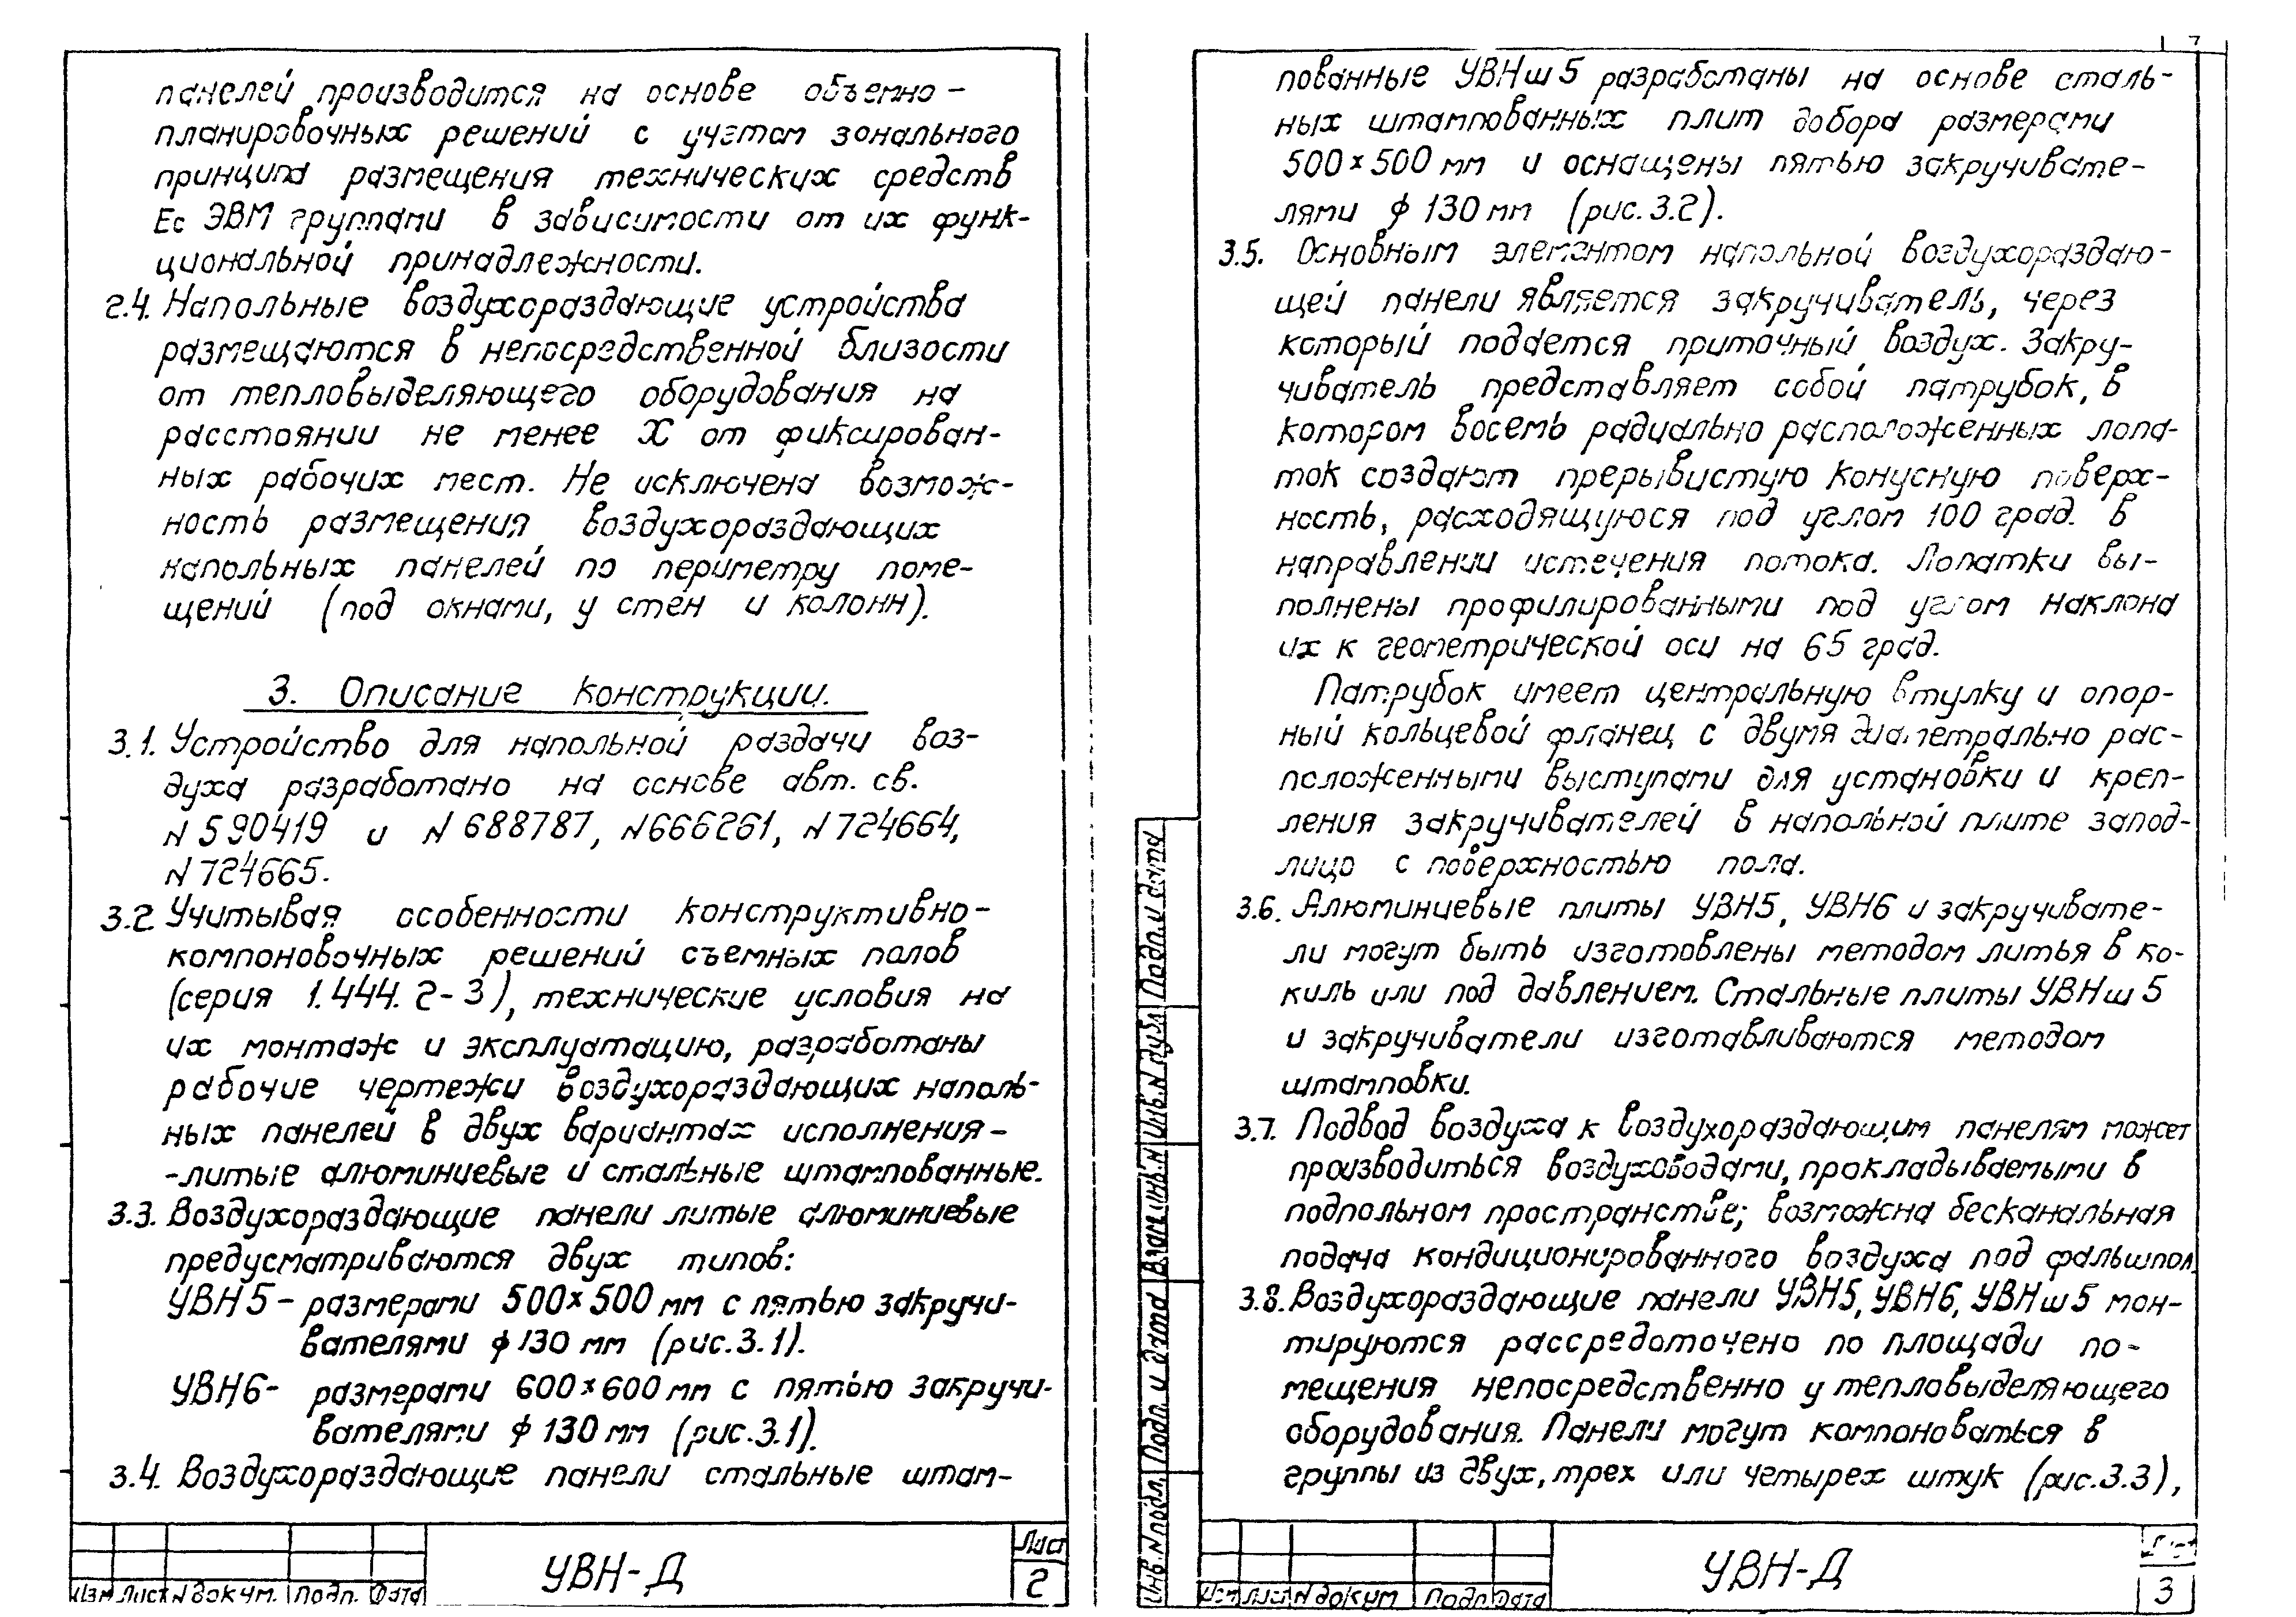 панелей производится на основе объемно-
планировочных решений с учетом зонального
принципа размещения технических средств
Ес ЭВМ группами в зависимости от их функ-
циональной принадлежности.
2.4. Напольные воздухораздающие устройства
размещаются в непосредственной близости
от тепловыделяющего оборудования на
расстоянии не менее X от фиксирован-
ных рабочих мест. Не исключена возмож-
ность размещения воздухораздающих
напольных панелей по периметру поме-
щений (под окнами, у стен и колонн).
3. Описание конструкции.
3.1. Устройство для напольной раздачи воз-
духа разработано на основе авт. св.
N 590419 и N 688787, N666261, N 724664,
N 724665.
3.2 Учитывая особенности конструктивно-
компоновочных решений съемных полов
(серия 1.444.2-3), технические условия на
их монтаж и эксплуатацию, разработаны
рабочие чертежи воздухораздающих наполь-
ных панелей в двух вариантах исполнения-
-литые алюминиевые и стальные штампованные.
3.3. Воздухораздающие панели литые алюминиевые
предусматриваются двух типов:
УВН5 - размерами 500×500 мм с пятью закручи-
вателями ϕ 130 мм (рис.3.1).
УВН6- размерами 600×600 мм с пятью закручи-
вателями ϕ 130 мм (рис.3.1).
3.4. Воздухораздающие панели стальные штам-
УВН-Д
Лист
2
Изм Лист N докум. Подп. Дата
7
пованные УВНш5 разработаны на основе сталь-
ных штампованных плит добора размерами
500×500 мм и оснащены пятью закручивате-
лями ϕ 130 мм (рис.3.2).
3.5. Основным элементом напольной воздухораздаю-
щей панели является закручиватель, через
который подается приточный воздух. Закру-
чиватель представляет собой патрубок, в
котором восемь радиально расположенных лопа-
ток создают прерывистую конусную поверх-
ность, расходящуюся под углом 100 град. в
направлении истечения потока. Лопатки вы-
полнены профилированными под углом наклона
их к геометрической оси на 65 град.
Патрубок имеет центральную втулку и опор-
ный кольцевой фланец с двумя диаметрально рас-
положенными выступами для установки и креп-
ления закручивателей в напольной плите запод-
лицо с поверхностью пола.
3.6. Алюминиевые плиты УВН5, УВН6 и закручивате-
ли могут быть изготовлены методом литья в ко-
киль или под давлением. Стальные плиты УВНш5
и закручиватели изготавливаются методом
штамповки.
3.7. Подвод воздуха к воздухораздающим панелям может
производиться воздуховодами, прокладываемыми в
подпольном пространстве; возможна бесканальная
подача кондиционированного воздуха под фальшпол.
3.8. Воздухораздающие панели УВН5, УВН6, УВНш5 мон-
тируются рассредоточено по площади по-
мещения непосредственно у тепловыделяющего
оборудования. Панели могут компоноваться в
группы из двух, трех или четырех штук (рис.3.3),
Инв.N подл. Подп. и дата Взам.инв.N Инв.N дубл Подп. и дата
УВН-Д
Лист
3
Изм Лист N докум Подп Дата